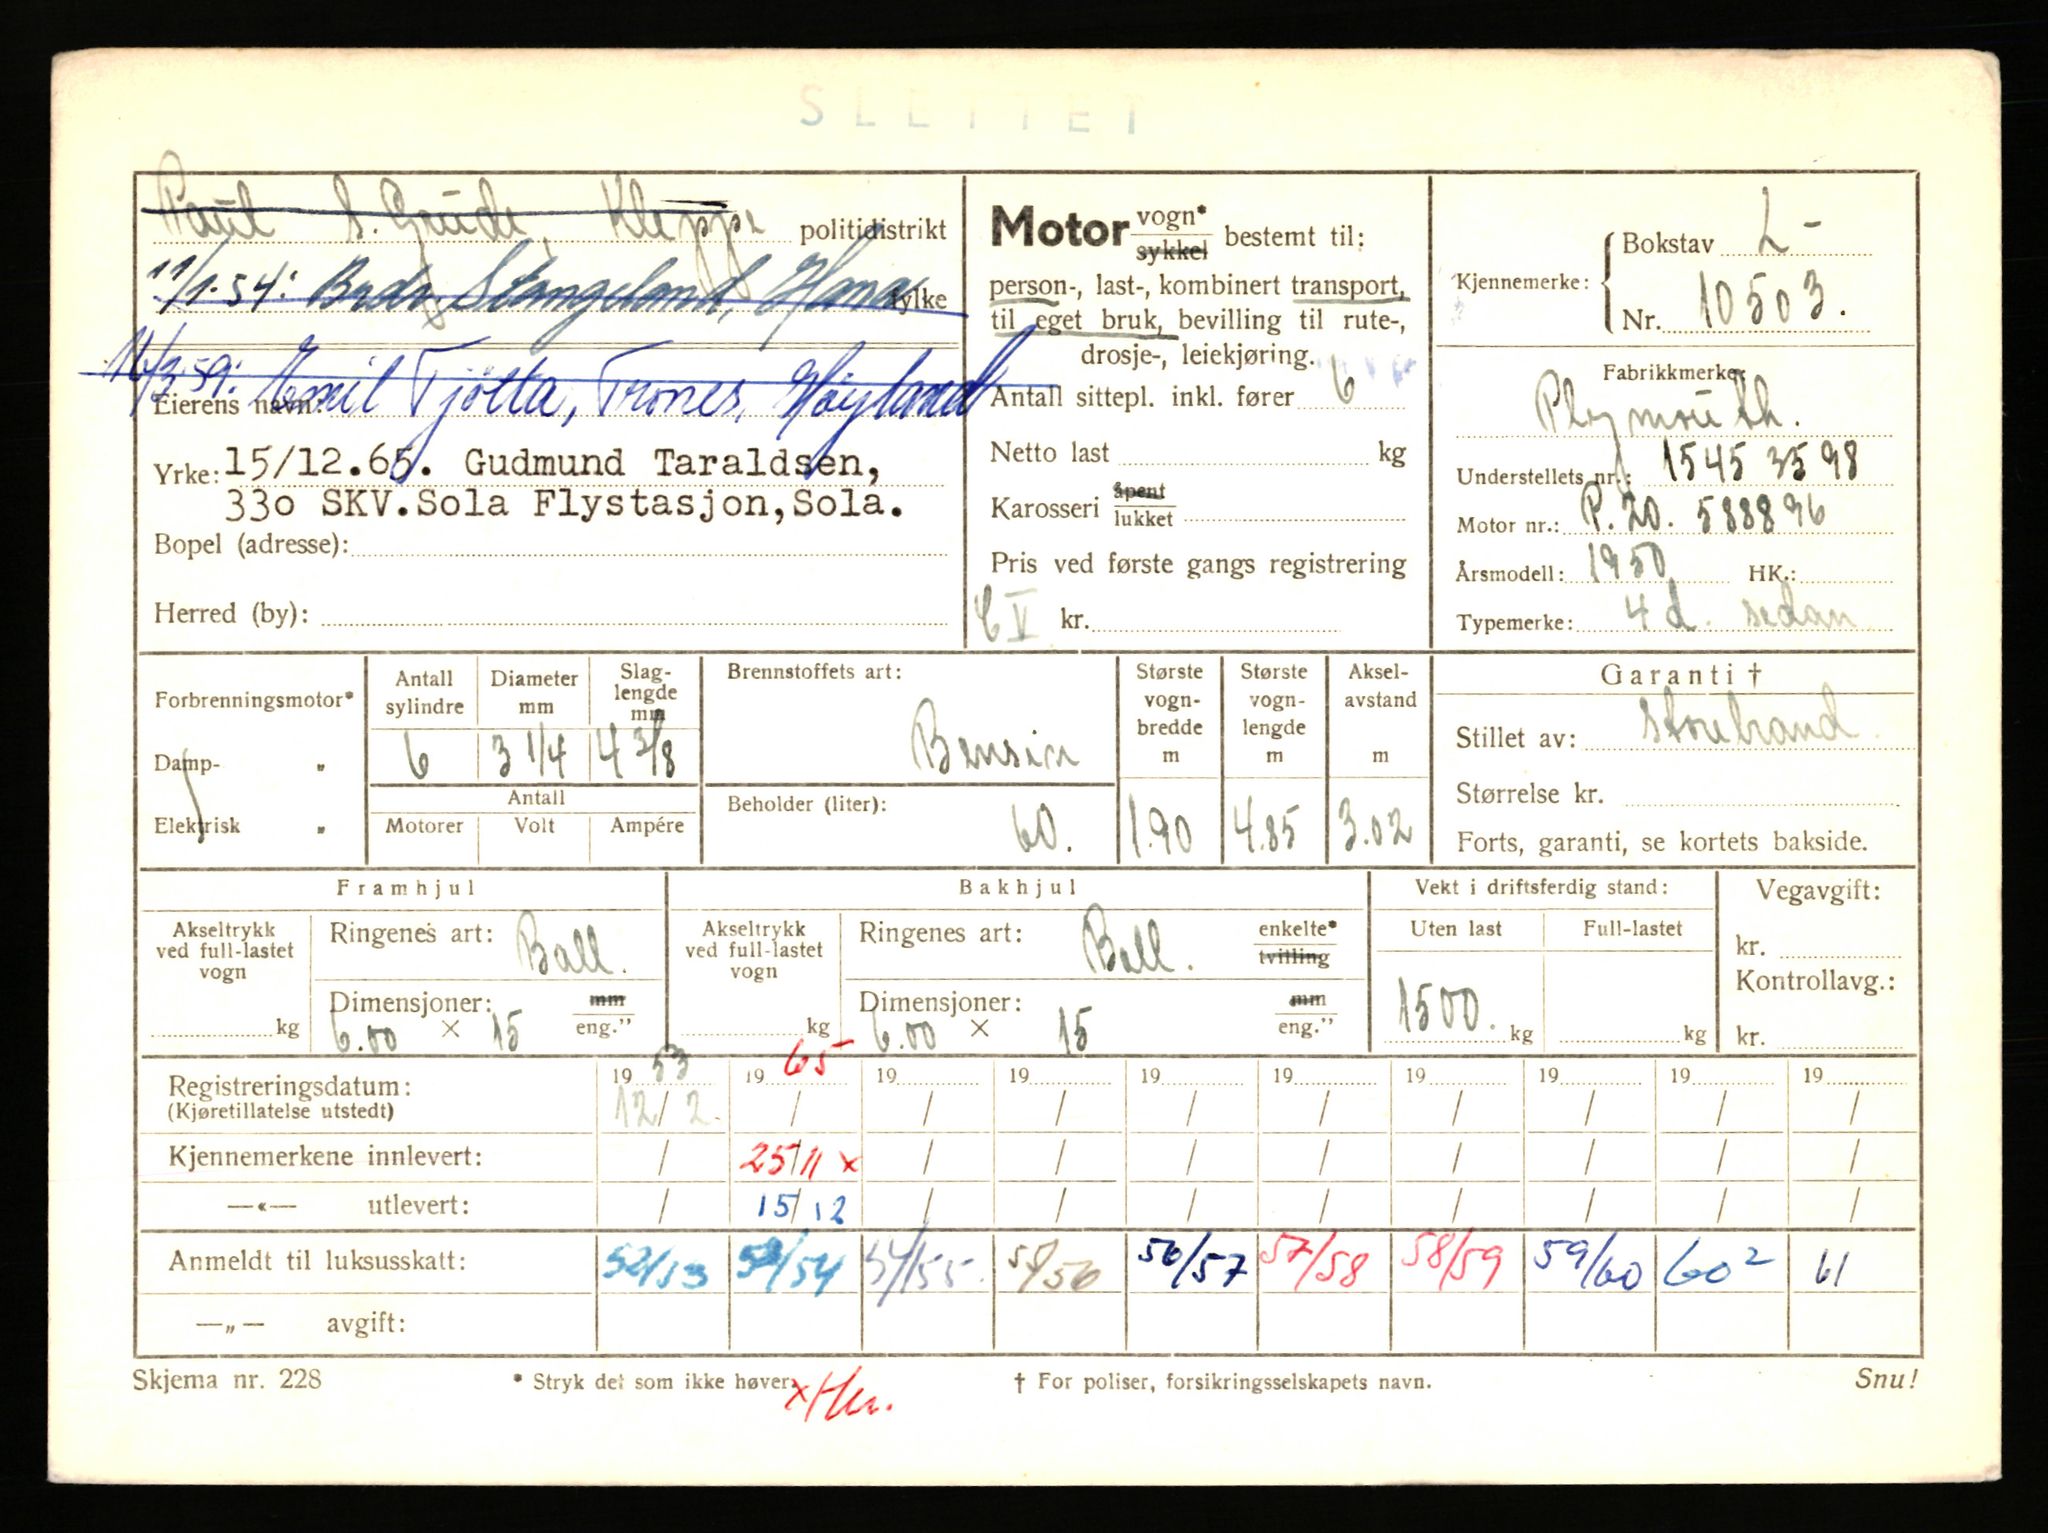 SLETTET
Paul S. Gaude, Kleppe politidistrikt
11/1-54: Brdr. Stangeland, Hana fylke
16/3 59: Emil Tjøtta, Trones, Høyland
Eierens navn:
Yrke: 15/12.65. Gudmund Taraldsen,
330 SKV.Sola Flystasjon,Sola.
Bopel (adresse):
Herred (by):
Motor vogn* sykkel bestemt til:
person-, last-, kombinert transport,
til eget bruk, bevilling til rute-,
drosje-, leiekjøring.
Antall sittepl. inkl. fører 6
Netto last kg
Karosseri åpent lukket
Pris ved første gangs registrering
C V kr.
Kjennemerke: Bokstav L-
Nr. 10503.
Fabrikkmerke:
Plymouth.
Understellets nr.: 15453598
Motor nr.: P.20. 588896
Årsmodell: 1950 HK.:
Typemerke: 4 d. sedan
Forbrenningsmotor*
Damp- „
Elektrisk „
Antall sylindre Diameter mm Slaglengde mm
6 3 1/4 4 3/8
Antall
Motorer Volt Ampére
Brennstoffets art:
Bensin
Beholder (liter):
60.
Største vogn-bredde m
1.90
Største vogn-lengde m
4.85
Aksel-avstand m
3.02
Garanti †
Stillet av: Storebrand.
Størrelse kr.
Forts, garanti, se kortets bakside.
Framhjul
Akseltrykk ved full-lastet vogn
kg
Ringenes art: Ball.
Dimensjoner: mm
6.00 × 15 eng."
Bakhjul
Akseltrykk ved full-lastet vogn
kg
Ringenes art: Ball. enkelte* tvilling
Dimensjoner: mm
6.00 × 15 eng."
Vekt i driftsferdig stand:
Uten last Full-lastet
1500. kg kg
Vegavgift:
kr.
Kontrollavg.:
kr.
Registreringsdatum: 19 53 19 65 19 19 19 19 19 19 19 19
(Kjøretillatelse utstedt) 12/2. / / / / / / / / /
Kjennemerkene innlevert: / 25/11 × / / / / / / / /
—«— utlevert: / 15/12 / / / / / / / /
Anmeldt til luksusskatt: 52/53 53/54 54/55. 55/56 56/57 57/58 58/59 59/60 60² 61
—„— avgift:
Skjema nr. 228 * Stryk det som ikke høver. † For poliser, forsikringsselskapets navn. Snu!